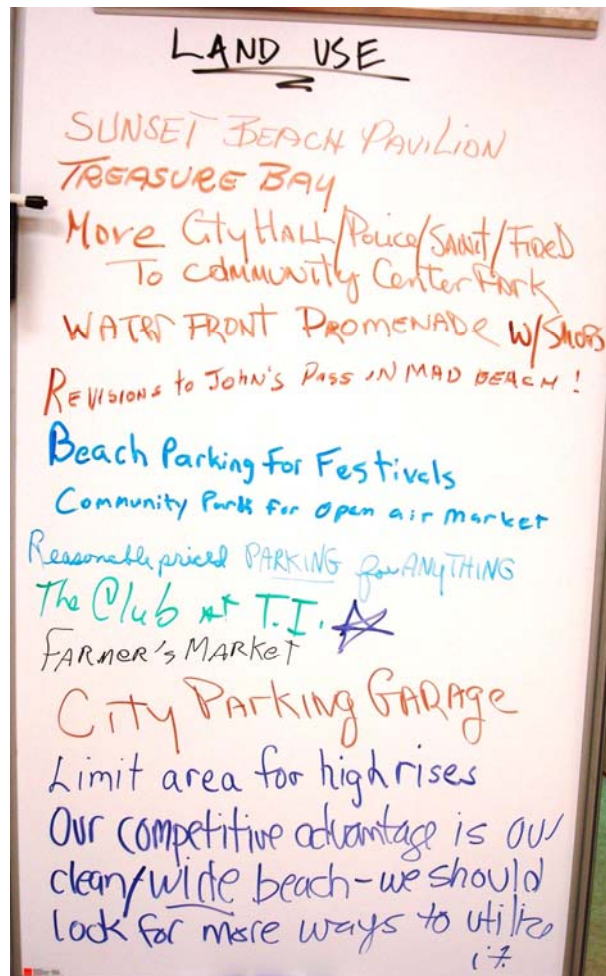 LAND USE
SUNSET BEACH PAVILION
TREASURE BAY
More City HALL/Police/SANIT/FIRED
To community Center Park
WATER FRONT PROMENADE W/SHOPS
REVISIONS to JOHN'S PASS IN MAD BEACH!
Beach Parking for Festivals
Community Park for open air market
Reasonable priced PARKING for ANYTHING
The Club At T.I.
FARMER'S MARKET
CITY PARKING GARAGE
Limit area for highrises
Our competitive advantage is our
clean/wide beach - we should
look for more ways to utilize
it.